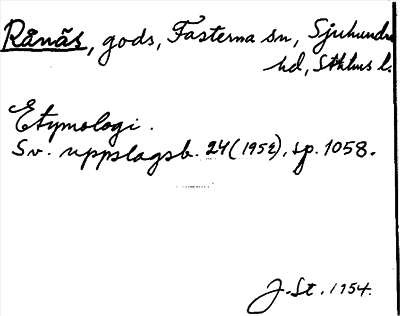 Rånäs, gods, Fasterna sn, Sjuhundra
hd, Sthlms l.
Etymologi.
Sv. uppslagsb. 24 (1952), sp. 1058.
J. St. 1954.